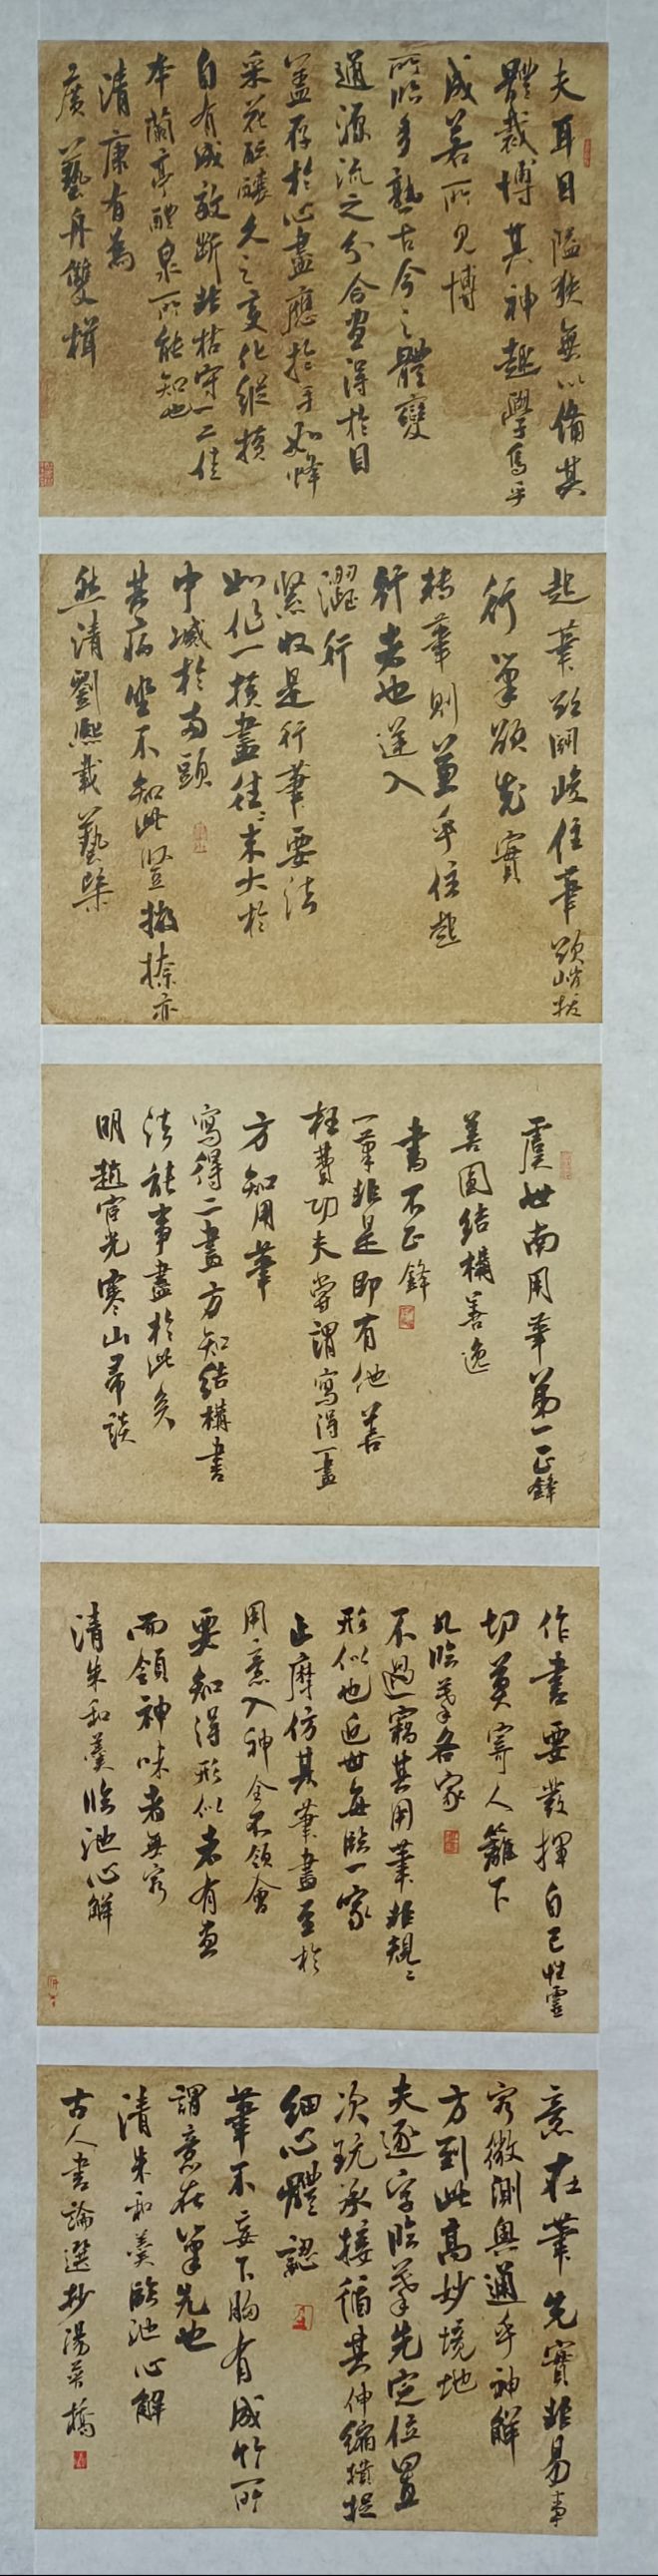 夫耳目隘狹無以備其
體裁博其神趣學烏乎
成若所見博
所臨多熟古今之體變
通源流之分合盡得於目
盡存於心盡應於手如蜂
采花醞釀久之變化縱橫
自有成效斷非枯守一二佳
本蘭亭醴泉所能知也
清康有為
廣藝舟雙楫
起筆欲鬥峻住筆欲峭拔
行筆欲充實
轉筆則兼乎住起
行者也逆入
澀行
緊收是行筆要法
如作一橫畫往往末大於
中減於兩頭
其病坐不知此豎撇捺亦
然清劉熙載藝槩
虞世南用筆第一正鋒
善圓結構善逸
書不正鋒
一筆非是即有他善
枉費功夫嘗謂寫得一畫
方知用筆
寫得二畫方知結構書
法能事盡於此矣
明趙宧光寒山帚談
作書要發揮自己性靈
切莫寄人籬下
凡臨摹各家
不過竊其用筆非規々
形似也近世每臨一家
止摩仿其筆畫至於
用意入神全不領會
要知得形似者有盡
而領神味者無窮
清朱和羹臨池心解
意在筆先實非易事
窮微測奧通乎神解
方到此高妙境地
夫逐字臨摹先定位置
次玩承接循其伸縮攢捉
細心體認
筆不妄下胸有成竹所
謂意在筆先也
清朱和羹臨池心解
古人書論選抄湯英橋